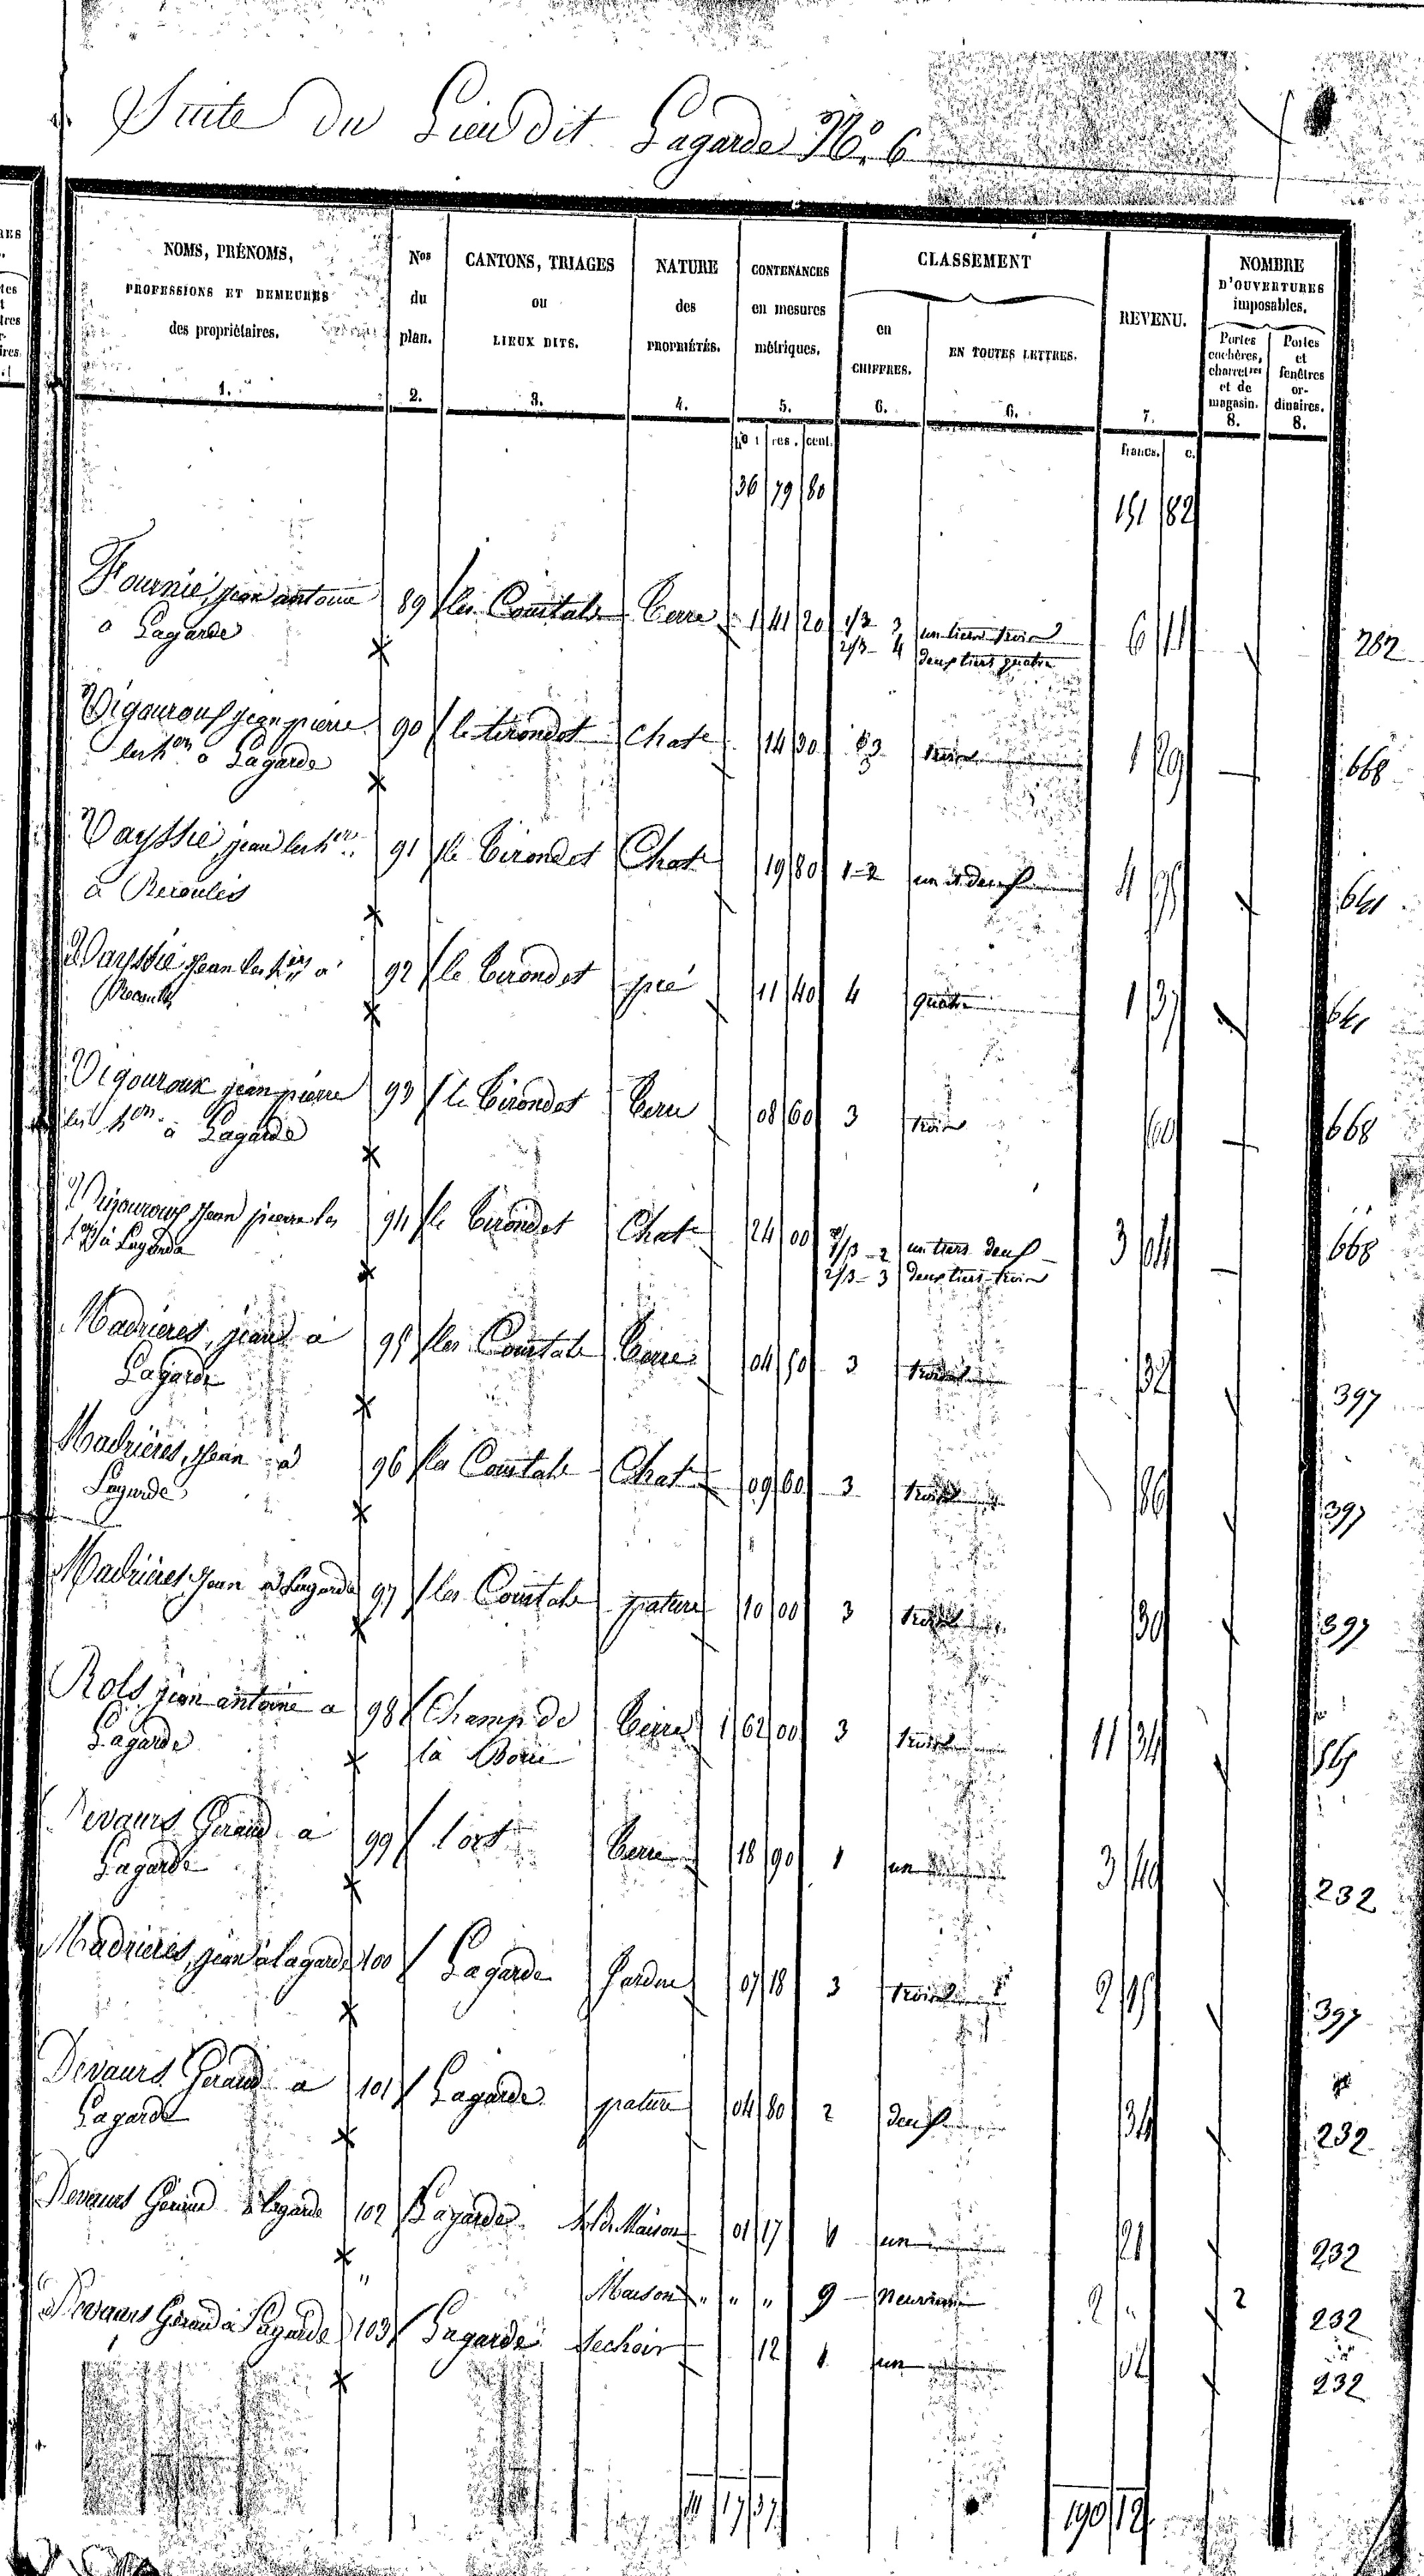 Suite du Lieu dit Lagarde N° 6
NOMS, PRÉNOMS, PROFESSIONS ET DEMEURES des propriétaires. 1.
Nos du plan. 2.
CANTONS, TRIAGES ou LIEUX DITS. 3.
NATURE des PROPRIÉTÉS. 4.
CONTENANCES en mesures métriques. 5.
CLASSEMENT
en CHIFFRES. 6.
EN TOUTES LETTRES. 6.
REVENU. 7.
NOMBRE D'OUVERTURES imposables.
Portes cochères, charretres et de magasin. 8.
Portes et fenêtres ordinaires. 8.
cent. francs. c.
36 79 80 151 82
Fournié, jean antoine 89 les Courtals Terre 1 41 20 1/3 3 un tiers trois 6 11 262
à Lagarde 2/3 4 deux tiers quatre
Vigouroux jean pierre 90 le tirondet chate 14 30 3 trois 1 29 668
les hers à Lagarde
Vayssié jean les hers 91 le Tirondet Chate 19 80 1-2 un et deux 4 95 641
à Recoulès
Vayssié Jean les hers à 92 le Tirondet pré 11 40 4 quatre 1 37 641
Vigouroux jean pierre 93 le Tirondet Terre 08 60 3 trois 60 668
les hers à Lagarde
Vigouroux Jean pierre les 94 le Tirondet Chate 24 00 1/3 2 un tiers deux 3 04 668
hers à Lagarde 2/3 3 deux tiers trois
Madrières, jean à 95 les Courtals Terre 04 50 3 trois 32 397
Lagarde
Madrières, Jean à 96 les Courtals Chate 09 60 3 trois 86 397
Lagarde
Madrières Jean à Lagarde 97 les Courtals pature 10 00 3 trois 30 397
Rols jean antoine à 98 Champ de Terre 1 62 00 3 trois 11 34 565
Lagarde la Borie
Devaurs Géraud à 99 l'ort Terre 18 90 1 un 3 40 232
Lagarde
Madrières, jean à lagarde 100 Lagarde Jardin 07 18 3 trois 2 15 397
Devaurs Géraud à 101 Lagarde pature 04 80 2 deux 34 232
Lagarde
Devaurs Géraud à Lagarde 102 Lagarde Sol de Maison 01 17 1 un 21 232
" Maison " " " 9 neuvième 2 " 2 232
Devaurs Géraud à Lagarde 103 Lagarde Sechoir 12 1 un 02 232
41 17 37 190 12